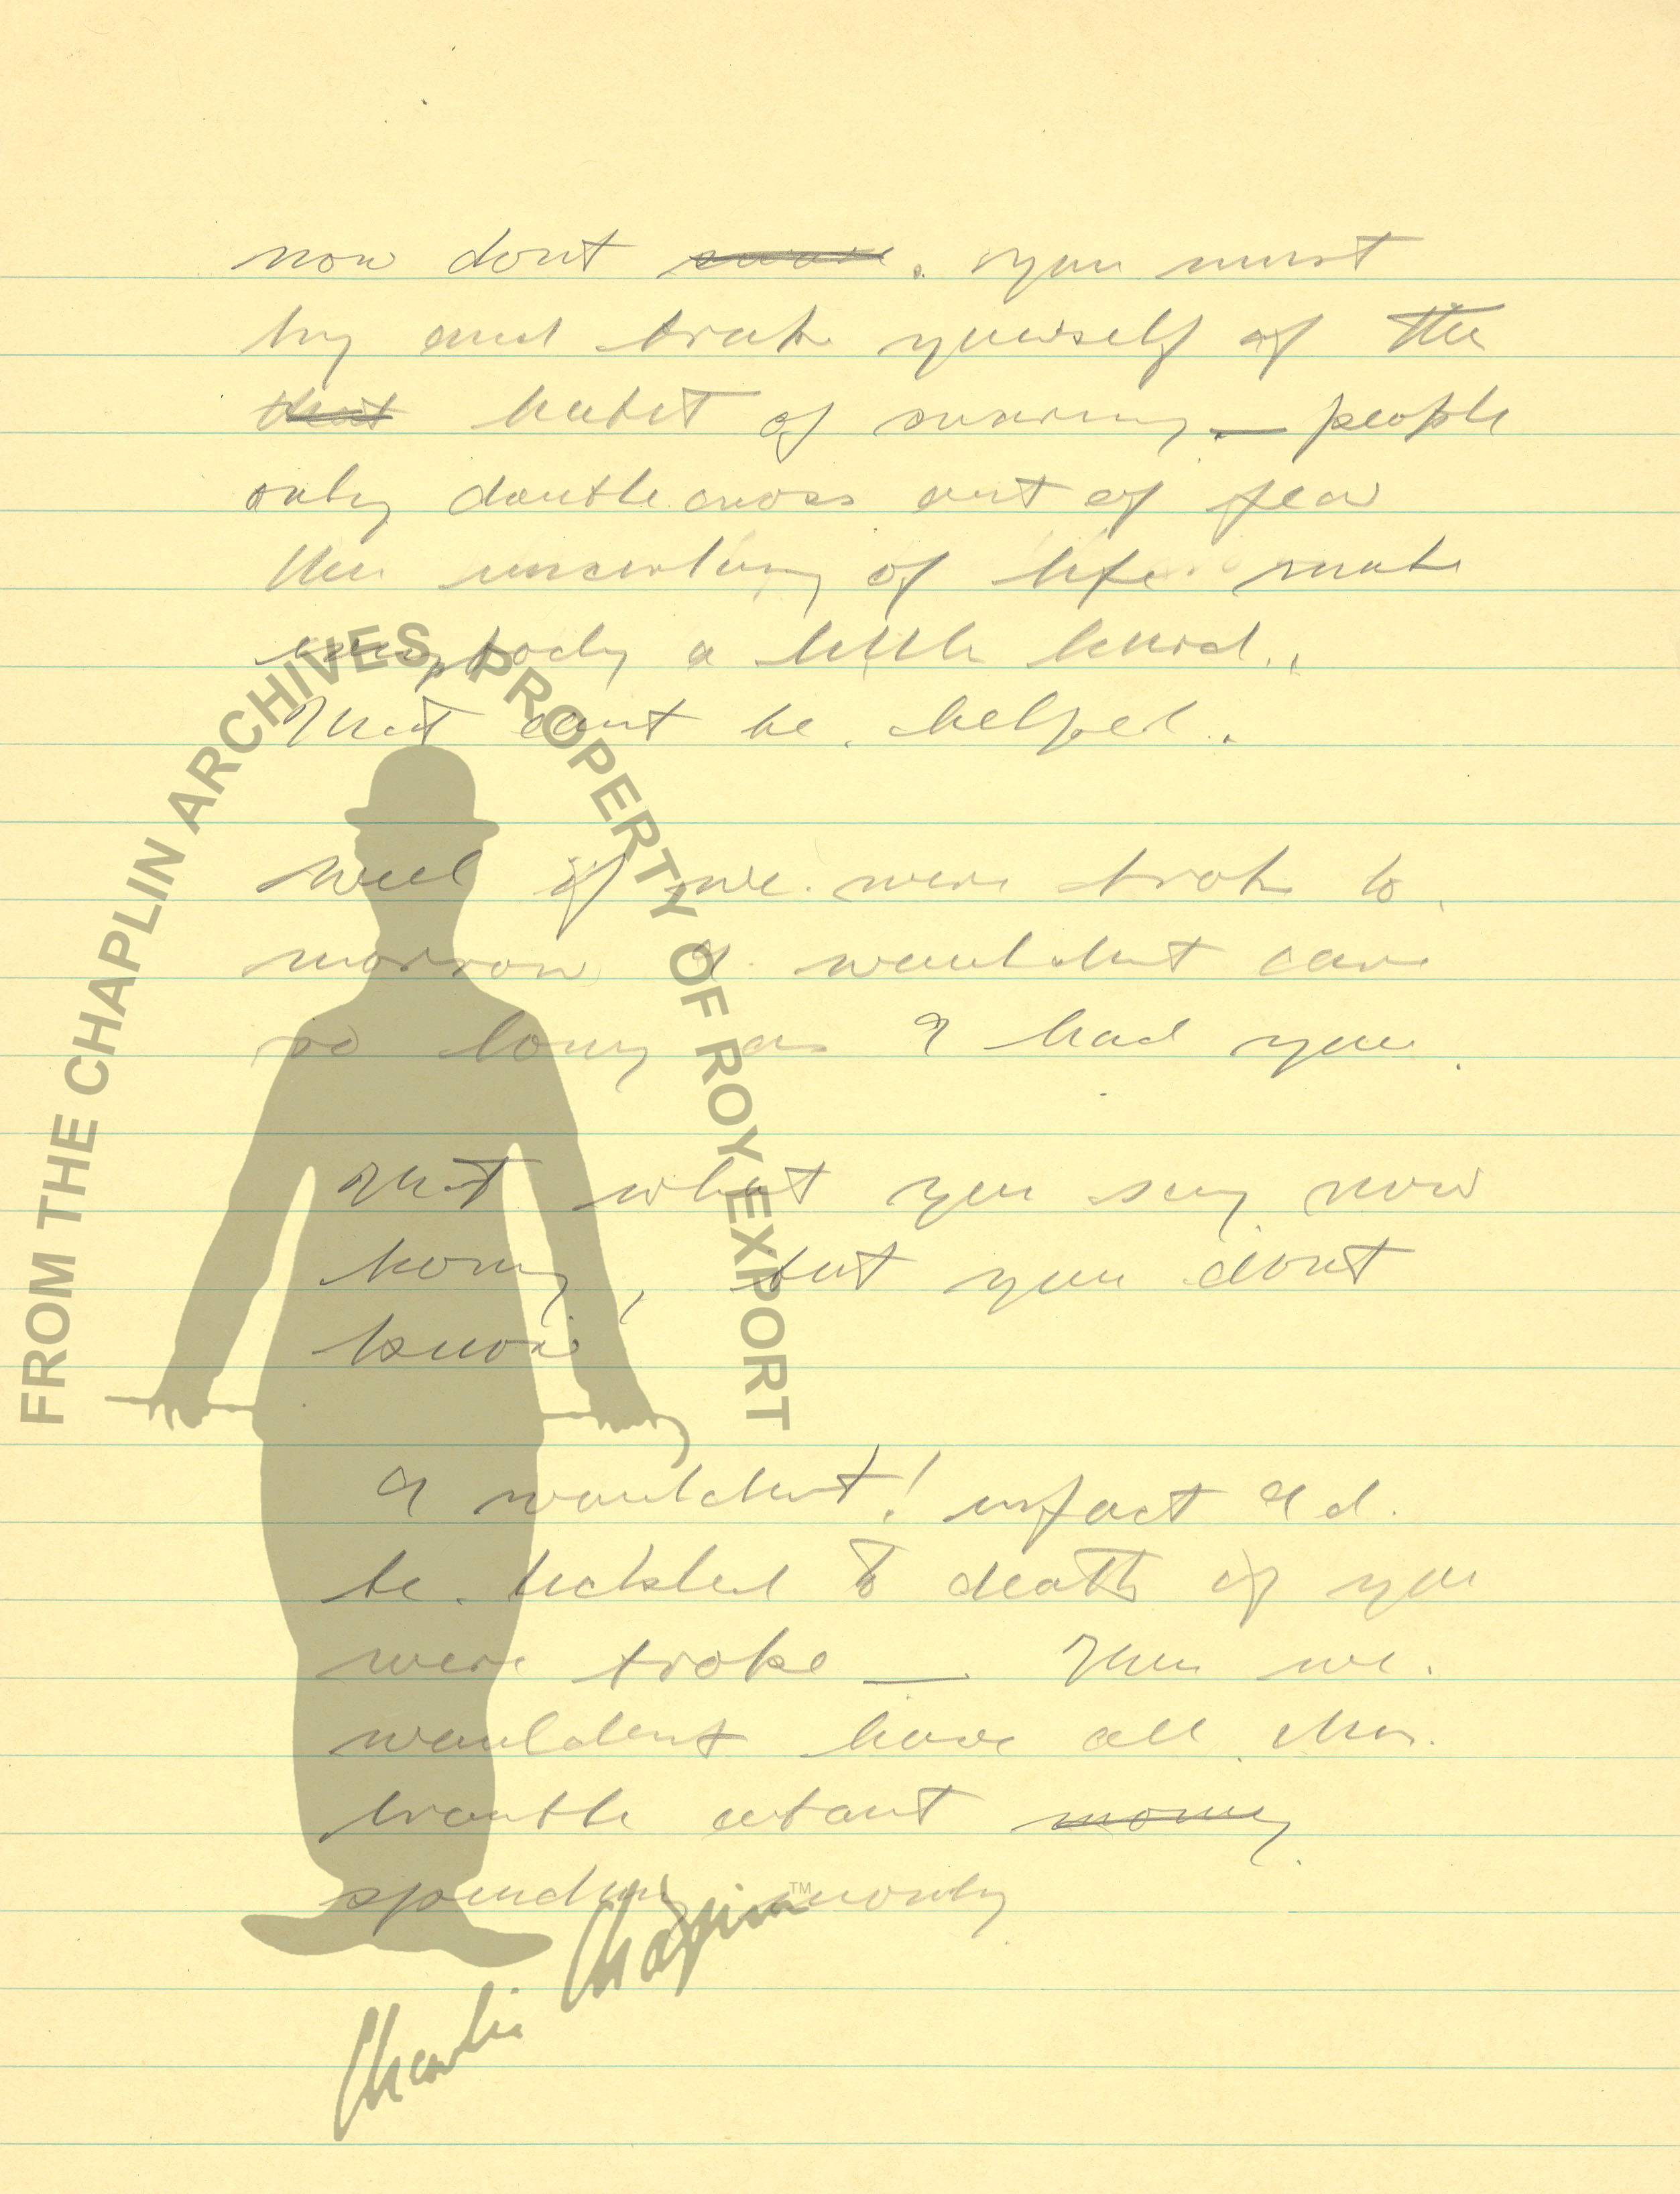 now dont swear. you must
try and brake yourself of the
that habit of swaring — people
only doublecross out of fear
the uncertiny of life make
everybody a little
That cant be helped.
well if we were broke to
morrow I wouldent care
so long as I had you.
that what you say now
hony, but you dont
know
I wouldent! infact I d.
be tickled to death if you
were broke — Then we.
wouldent have all this.
trouble about money
spending monly
FROM THE CHAPLIN ARCHIVES, PROPERTY OF ROY EXPORT
Charlie Chaplin™